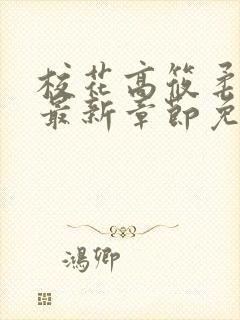 校花高筱柔
最新章节免
鸿卿